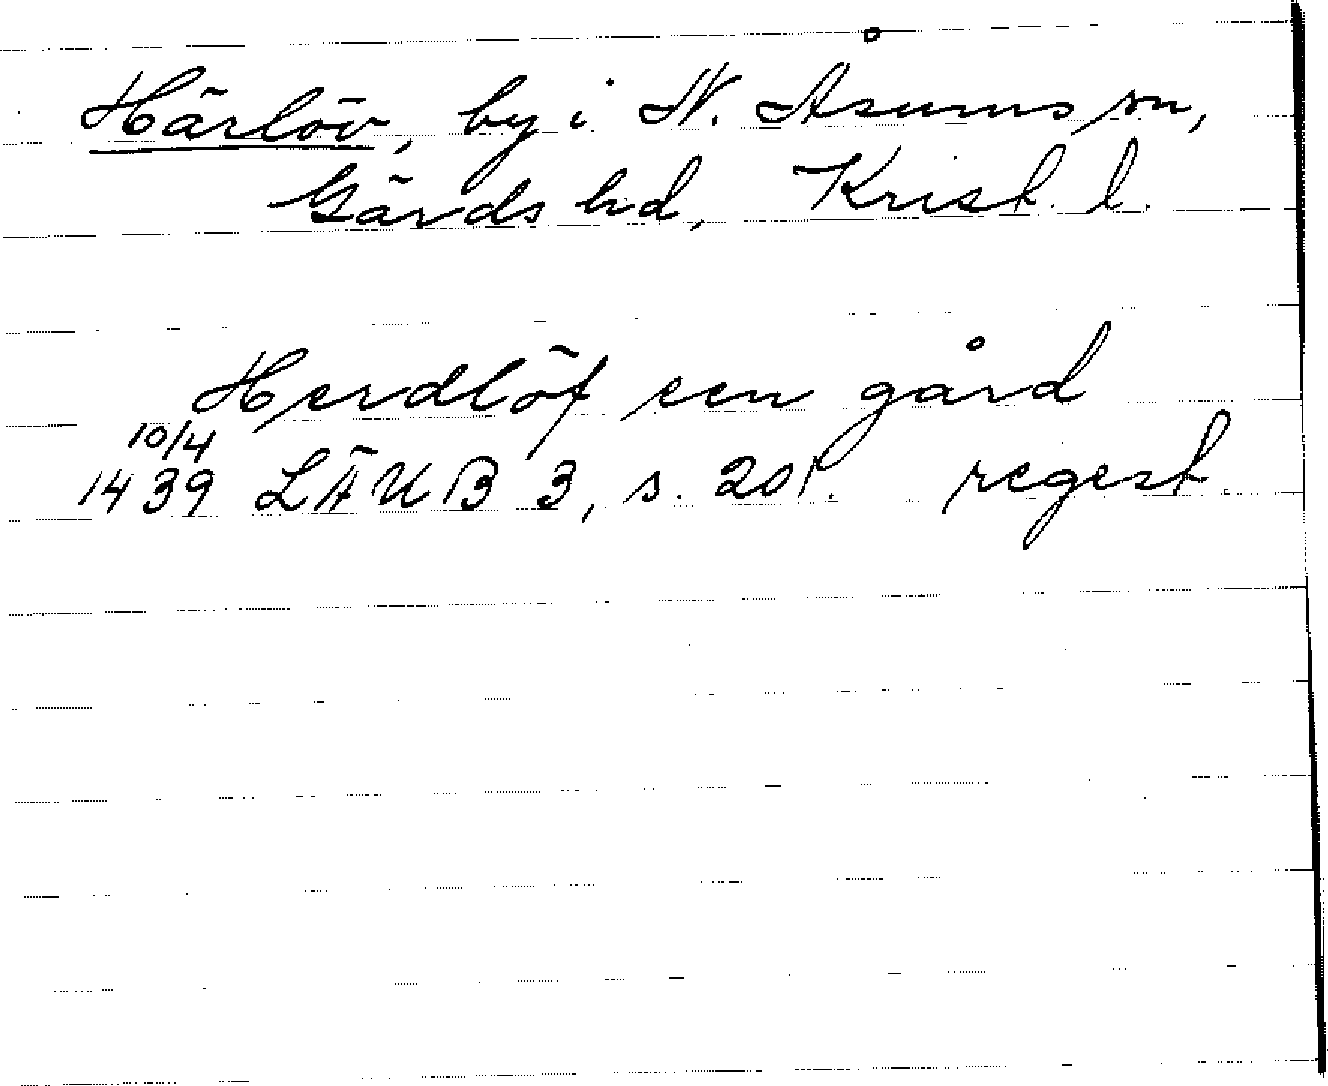 Härlöv, by i N. Åsums sn,
Gärds hd, Krist. l.
Herdlöf een gård
10/4
1439 LÄUB 3, s. 201. regest